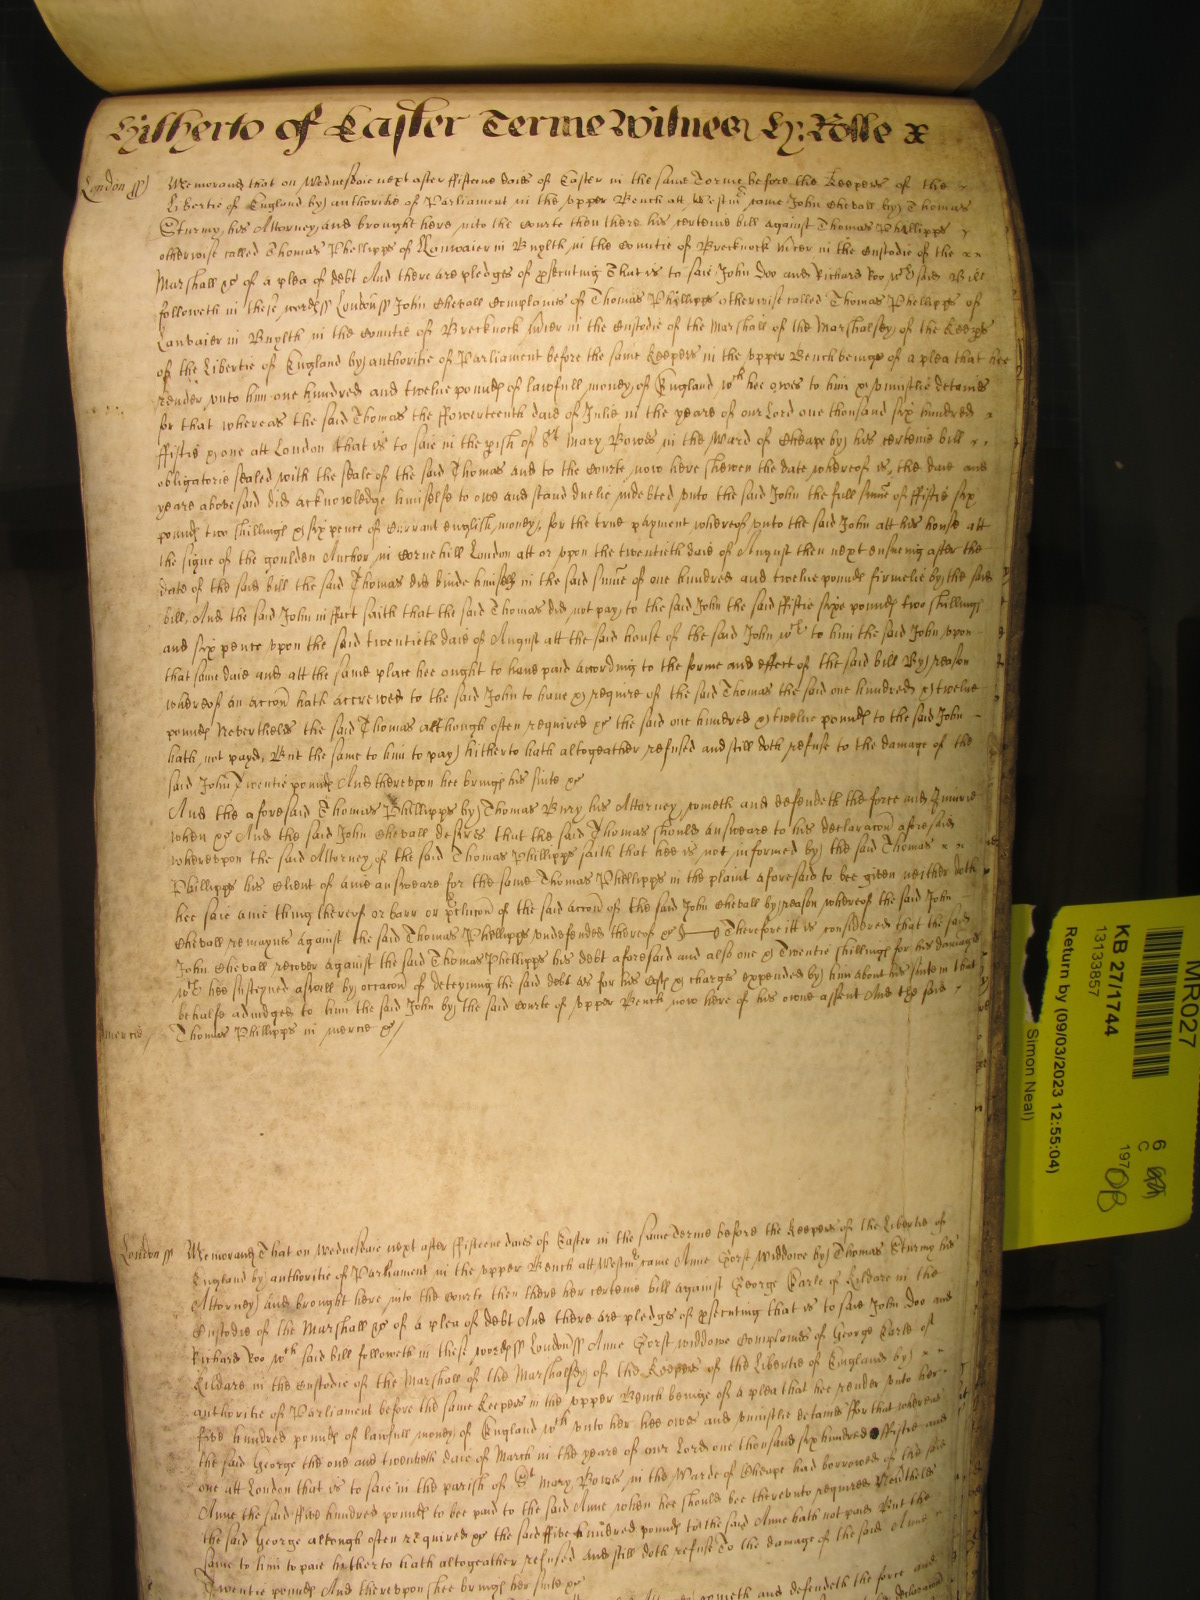 Hitherto of Easter Terme Witnes H: Rolle
London ss Memorand that on Wednesdaie next after ffifteene daies of Easter in the same Terme before the Keepers of the
Libertie of England by authoritie of Parliament in the vpper Bench att Westm came John Chevall by Thomas
Sturmy his Attorney and brought here into the Courte then there his certeine bill against Thomas Phillipps
otherwise called Thomas Phellipps of Llanvaier in Buylth in the Countie of Brecknock in the Custodie of the
Marshall &c of a plea of debt And there are pledges of prosecuting That is to saie John Doo and Richard Roo wch said Bill
followeth in these words ss London ss John Chevall Complaines of Thomas Phillipps otherwise called Thomas Phellipps of
Lanvaier in Buylth in the Countie of Brecknock in the Custodie of the Marshall of the Marshalsey of the Keeps
of the Libertie of England by authoritie of Parliament before the same Keepers in the vpper Bench beinge of a plea that hee
render vnto him one hundred and twelue pounds of lawfull money of England wch hee owes to him & vniustlie detaines
for that whereas the said Thomas the ffowerteenth daie of Julie in the yeare of our Lord one thousand six hundred
ffiftie & one att London that is to saie in the pish of St Mary Bowes in the Ward of Cheape by his certeine bill
obligatorie sealed with the seale of the said Thomas and to the Courte now here shewen the date whereof is the daie and
yeare abovesaid did acknowledge himselfe to owe and stand duelie indebted vnto the said John the full sume of ffiftie six
pounds two shillings & six pence of Currant english money for the true payment whereof vnto the said John att his house att
the signe of the goulden Anchor in Cornehill London att or vpon the twentieth daie of August then next ensueing after the
date of the said bill the said Thomas did binde himself in the said sume of one hundred and twelue pounds firmelie by the said
bill, And the said John in ffact saith that the said Thomas did not pay to the said John the said ffiftie sixe pounds two shillings
and six pence vpon the said twentieth daie of August att the said house of the said John wch to him the said John vpon
that same daie and att the same place hee ought to haue paid according to the forme and effect of the said bill By reason
whereof an accon hath accrewed to the said John to haue & require of the said Thomas the said one hundred & twelue
pounds Neverthelis the said Thomas although often required &c the said one hundred & twelue pounds to the said John
hath not payd, But the same to him to pay hitherto hath altogeather refused and still doth refuse to the damage of the
said John Twentie pounds And therevpon hee brings his suite &c
And the aforesaid Thomas Phillipps by Thomas Bury his Attorney cometh and defendeth the force and Iniurie
when &c And the said John Chevall desires that the said Thomas should answeare to his declaracon aforesaid
wherevpon the said Attorney of the said Thomas Phillipps saith that hee is not informed by the said Thomas
Phillipps his Client of anie answeare for the same Thomas Phellipps in the plaint aforesaid to bee given neither doth
hee saie anie thing thereof or barr or of the said accon of the said John Chevall by reason whereof the said John
Chevall remaynes against the said Thomas Phellipps vndefended thereof &c Therefore itt is considered that the said
John Chevall recover against the said Thomas Phellipps his debt aforesaid and also one & Twentie shillings for his damages
wch hee susteyned aswell by occacon of deteyning the said debt as for his costs & charges expended by him about his suite in that
behalfe adiudged to him the said John by the said Courte of vpper Bench now here of his owne assent And the said
mercie Thomas Phillipps in mercie &c
London ss Memorand That on Wednesdaie next after ffifteene daies of Easter in the same terme before the Keepers of the Libertie of
England by authoritie of Parliament in the vpper Bench att Westm came Anne Gorst Widdowe by Thomas Sturmy his
Attorney and brought here into the Courte then there her certeine bill against George Earle of Kildare in the
Custodie of the Marshall &c of a plea of debt And there are pledges of prosecuting that is to saie John Doo and
Richard Roo wch said bill followeth in these words ss London ss Anne Gorst widdowe Complaines of George Earle of
Kildare in the Custodie of the Marshall of the Marshalsey of the Keepers of the Libertie of England by
authoritie of Parliament before the same Keepers in the vpper Bench beinge of a plea that hee render vnto her
five hundred pounds of lawfull money of England wch vnto her hee owes and vniustlie detaines ffor that whereas
the said George the one and twentieth daie of March in the yeare of our Lord one thousand six hundred ffiftie and
one att London that is to saie in the parish of St Mary Bowes in the Warde of Cheape had borrowed of the said
Anne the said ffive hundred pounds to bee paid to the said Anne when hee should bee therevnto required Neverthelis
the said George although often required &c the said ffive hundred pounds to the said Anne hath not paid But the
same to him to paie hitherto hath altogeather refused and still doth refuse To the damage of the said Anne
Twentie pounds And therevpon shee brings her suite &c
cometh and defendeth the force and
MR027
KB 27/1744
13133857
Return by (09/03/2023 12:55:04)
Simon Neal)
6
C
197